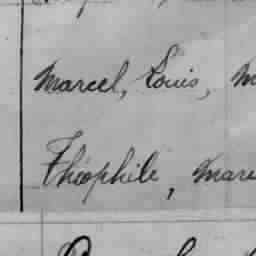 Marcel, Louis, M
Théophile, Marc